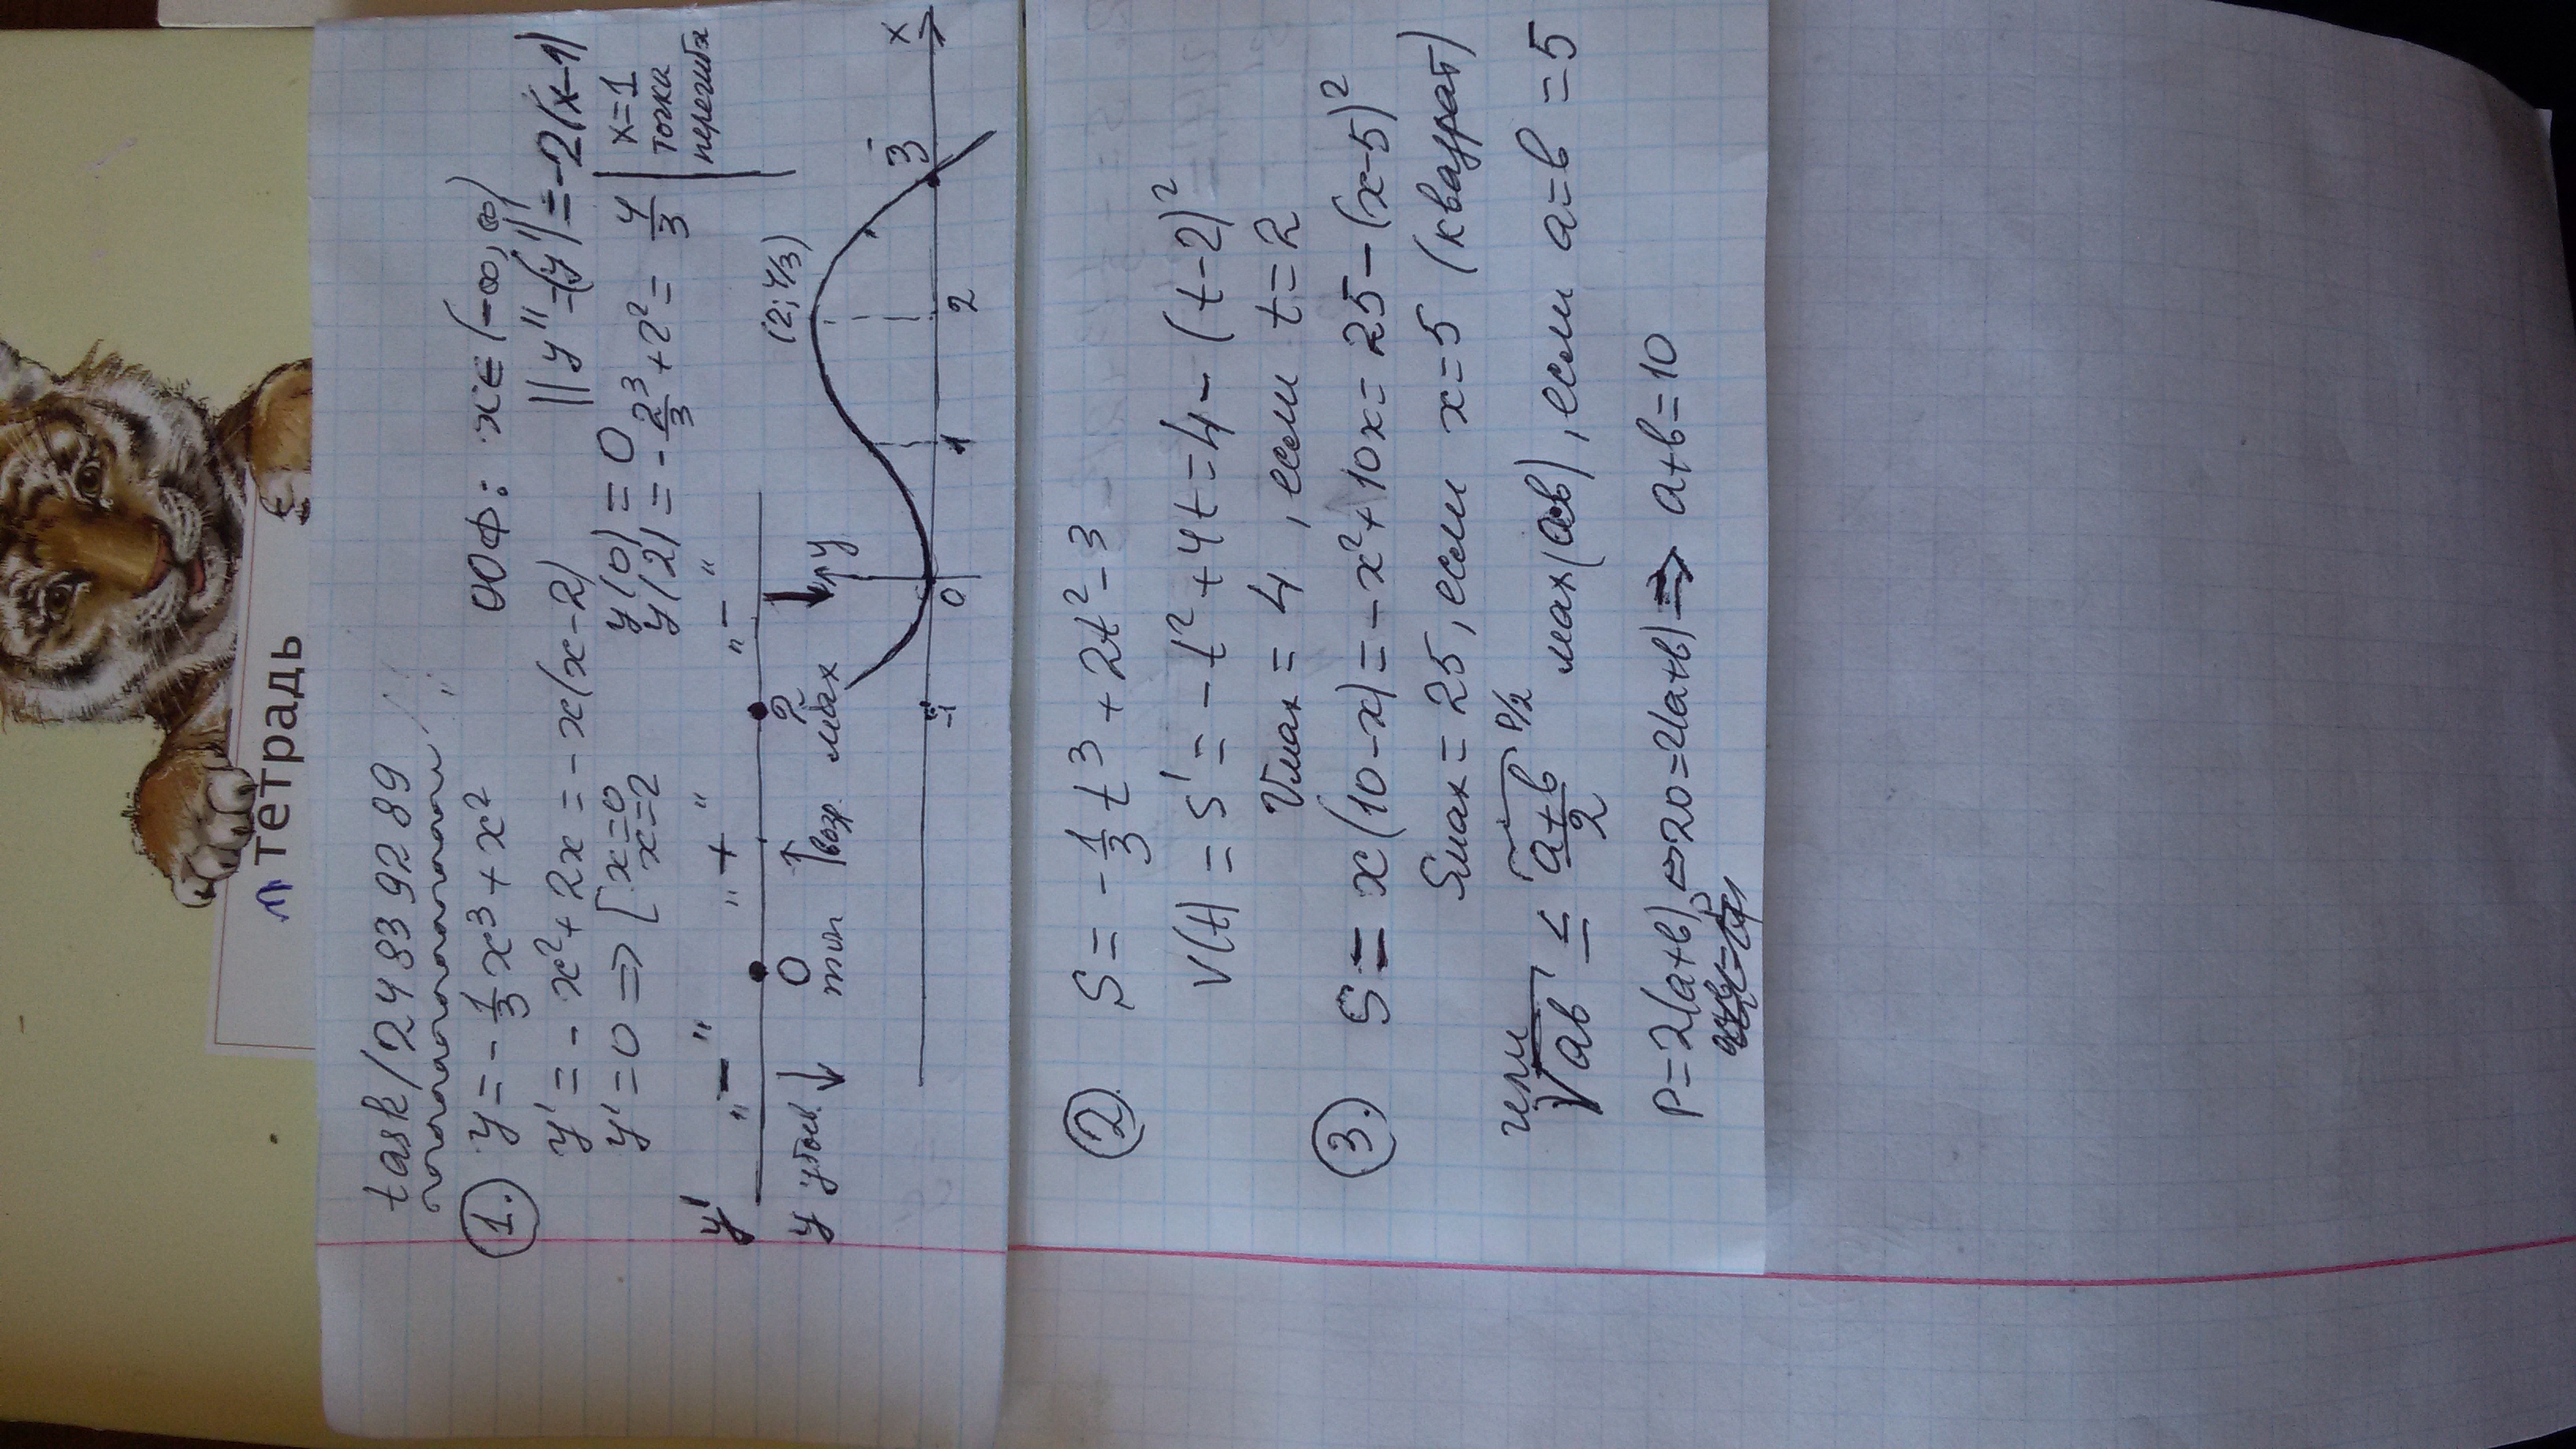 тетрадь
task/24839289
1. y = -1/3 x³ + x²    ООФ: x∈(-∞, ∞)
y' = -x² + 2x = -x(x-2)    || y'' = (y')' = -2(x-1)
y' = 0 => [x=0 x=2    y(0) = 0    | x=1
y(2) = -2³/3 + 2² = 4/3    | точка перегиба
y'    "-"    "+"    "-"
0    2
y убыв. ↓    min    ↑ возр.    мах    ↓
y
(2; 4/3)
-1    0    1    2    3    x
2. S = -1/3 t³ + 2t² - 3
V(t) = S' = -t² + 4t = 4 - (t-2)²
Vмах = 4, если t = 2
3. S = x(10-x) = -x² + 10x = 25 - (x-5)²
Sмах = 25, если x = 5 (квадрат)
или
√ab ≤ (a+b)/2    P/2    мах(ab), если a=b=5
P = 2(a+b) ⇔ 20 = 2(a+b) => a+b = 10